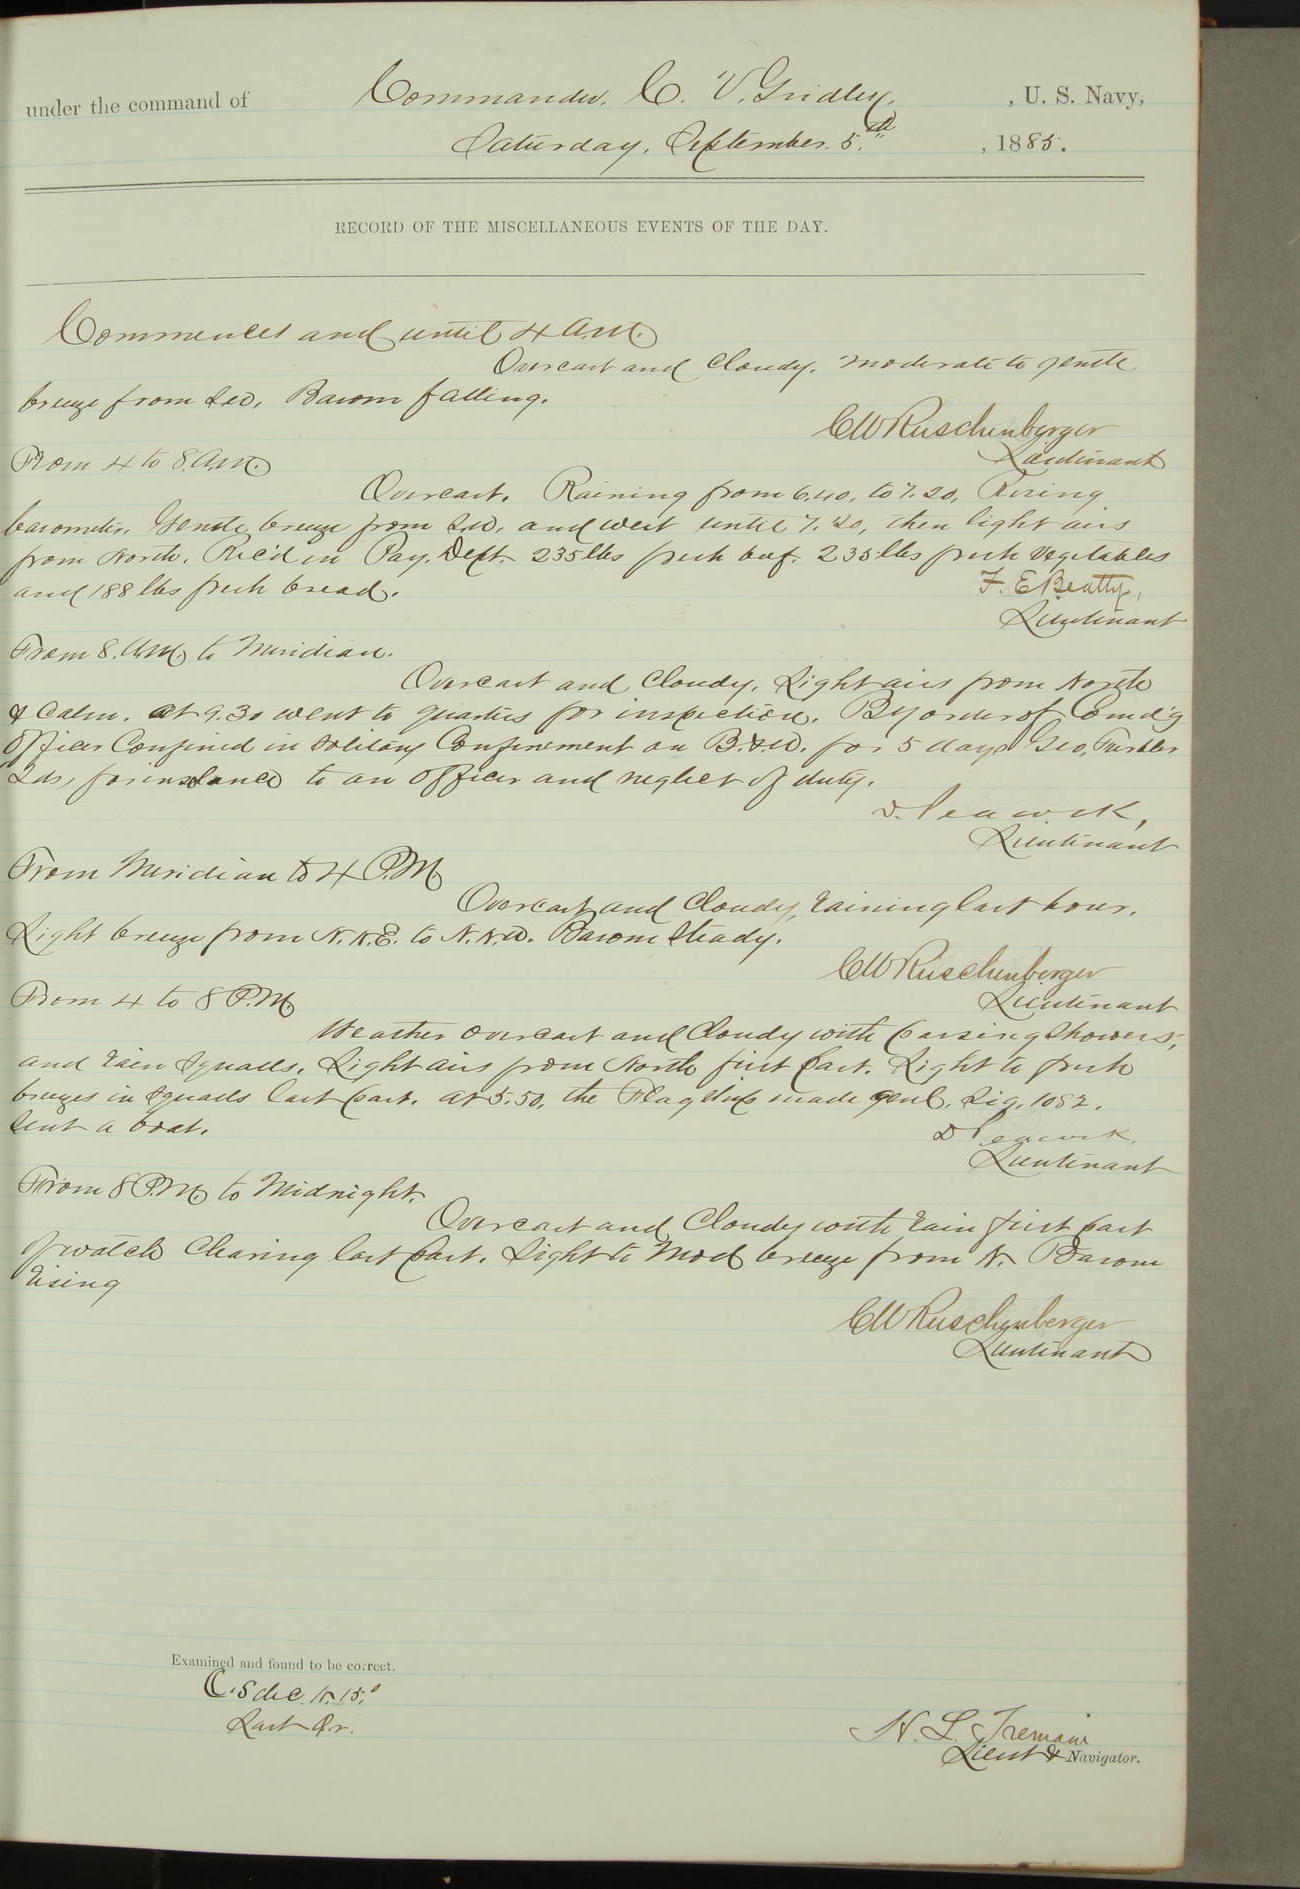 under the command of Commander. C. V. Gridley. , U. S. Navy,
Saturday, September. 5.th , 1885.
RECORD OF THE MISCELLANEOUS EVENTS OF THE DAY.
Commences and until 4 A.M.
Overcast and cloudy. Moderate to gentle
breeze from S.W. Barom falling.
C W Ruschenberger
Lieutenant
From 4 to 8. A.M.
Overcast. Raining from 6.40, to 7.20, Rising
barometer. Gentle breeze from S.W. and west until 7.20, then light airs
from North. Rec'd in Pay. Dept. 235 lbs fresh beef. 235 lbs fresh vegetables
and 188 lbs fresh bread.
F. E Beatty,
Lieutenant
From 8. A.M. to Meridian.
Overcast and cloudy. Light airs from North
& Calm. At 9.30 went to quarters for inspection. By order of Comd'g
Officer Confined in solitary Confinement on B.&W. for 5 days Geo,
Lds, for insolence to an officer and neglect of duty.
D. Peacock,
Lieutenant
From Meridian to 4 P.M
Overcast and cloudy, raining last hour.
Light breeze from N.N.E. to N.N.W. Barom Steady.
C W Ruschenberger
Lieutenant
From 4 to 8 P.M.
Weather overcast and cloudy with passing showers,
and rain squalls. Light airs from North first part. Light to fresh
breezes in squalls last part. At 5.50, the Flagship made genl. sig. 1082.
Sent a boat.
D Peacock,
Lieutenant
From 8 P.M. to Midnight.
Overcast and cloudy with rain first part
of watch clearing last part. Light to Mod breeze from N. Barom
rising
C W Ruschenberger
Lieutenant
Examined and found to be correct.
C.S dec. N. 15.°
Last Qr.
H. L. Tremain
Lieut & Navigator.